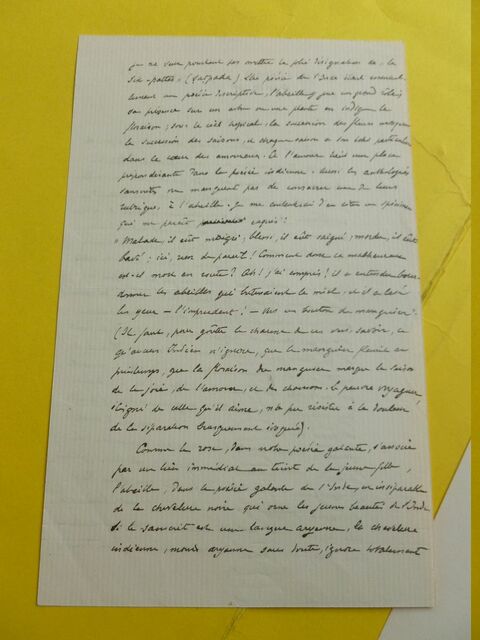 Je ne puis pourtant pas omettre la jolie désignation de « le
Six-pattes » (Satpada). La poésie de l'Inde étant essentiel-
lement une poésie descriptive, l'abeille y joue un grand rôle;
sa présence sur un arbre ou une plante en indique la
floraison; sous le ciel tropical, la succession des fleurs marque
la succession des saisons, et chaque saison a son écho particulier
dans le cœur des amoureux. Or l'amour tient une place
prépondérante dans la poésie indienne; aussi les anthologies
sanscrites ne manquent pas de consacrer une de leurs
rubriques à l'abeille. Je me contenterai d'en citer un spécimen
qui me paraît exquis :
« Malade, il eût maigri; blessé, il eût saigné; mordu, il eût
bavé; ici, rien de pareil! Comment donc ce malheureux
est-il mort en route? Ah! j'ai compris! il a entendu bour-
donner les abeilles qui butinaient le miel, et il a levé
les yeux — l'imprudent! — vers un bouton de manguier. »
(Il faut, pour goûter le charme de ces vers, savoir, ce
qu'aucun Indien n'ignore, que le manguier fleurit au
printemps, que la floraison du manguier marque la saison
de la joie, de l'amour, et des chansons. Le pauvre voyageur,
éloigné de celle qu'il aime, n'a pu résister à la douleur
de la séparation brusquement évoquée).
Comme la rose, dans notre poésie galante, s'associe
par un lien immédiat au teint de la jeune fille,
l'abeille, dans la poésie galante de l'Inde, est inséparable
de la chevelure noire qui orne les jeunes beautés de l'Inde
Si le sanscrit est une langue aryenne, la chevelure
indienne, moins aryenne sans doute, ignore totalement